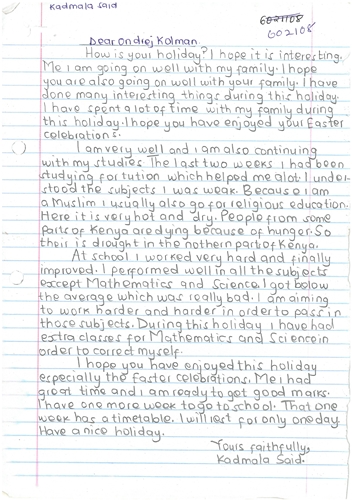 Kadmala Said
6021108
602108
Dear Ondrej Kolman
How is your holiday? I hope it is interesting.
Me I am going on well with my family. I hope
you are also going on well with your family. I have
done many interesting things during this holiday.
I have spent a lot of time with my family during
this holiday. I hope you have enjoyed your Easter
celebrations.
I am very well and I am also continuing
with my studies The last two weeks I had been
studying for tution which helped me alot. I under-
stood the subjects I was weak. Because I am
a Muslim I usually also go for religious education.
Here it is very hot and dry. People from some
parts of Kenya are dying because of hunger. So
their is drought in the nothern part of Kenya.
At school I worked very hard and finally
improved. I performed well in all the subjects
except Mathematics and Science. I got below
the average which was really bad. I am aiming
to work harder and harder in order to pass in
those subjects. During this holiday I have had
extra classes for Mathematics and Science in
order to correct myself.
I hope you have enjoyed this holiday
especially the Easter celebrations. Me I had
great time and I am ready to get good marks.
I have one more week to go to school. That one
week has a timetable. I will rest for only one day.
Have a nice holiday.
Yours faithfully,
Kadmala Said.